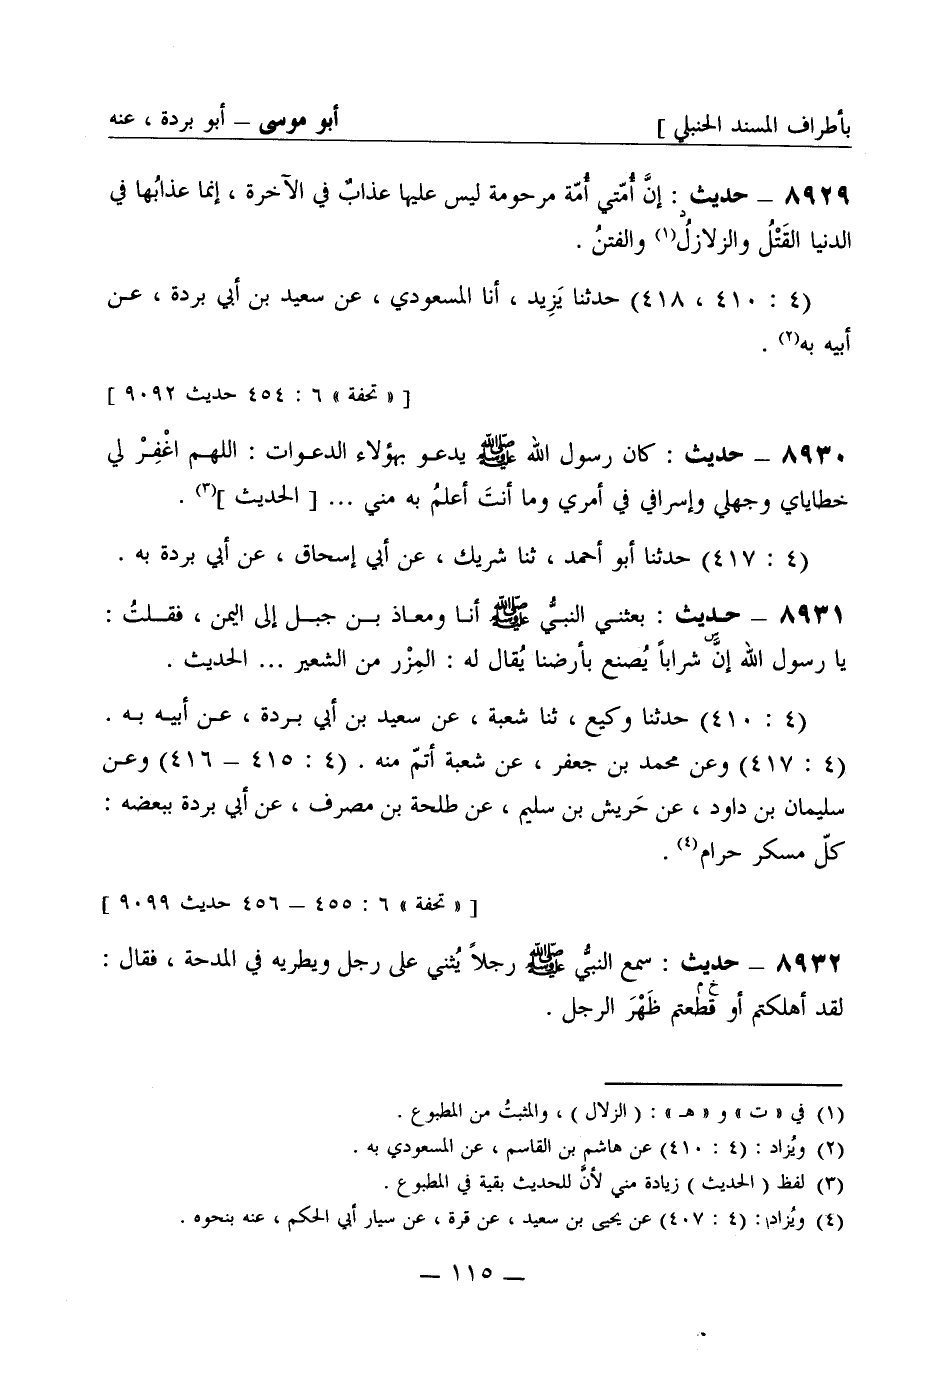 بأطراف المسند الحنبلي ] أبو موسى – أبو بردة ، عنه
٨٩٢٩ – حديث : إنَّ أُمّتي أُمّة مرحومة ليس عليها عذابٌ في الآخرة ، إنما عذابُها في
الدنيا القَتْلُ والزلازلُ(١) والفتنُ .
(٤ : ٤١٠ ، ٤١٨) حدثنا يَزِيد ، أنا المسعودي ، عن سعيد بن أبي بردة ، عن
أبيه به(٢) .
[ « تحفة » ٦ : ٤٥٤ حديث ٩٠٩٢ ]
٨٩٣٠ – حديث : كان رسول الله ﷺ يدعو بهؤلاء الدعوات : اللهم اغْفِرْ لي
خطاياي وجهلي وإسرافي في أمري وما أنتَ أعلمُ به مني ... [ الحديث ](٣) .
(٤ : ٤١٧) حدثنا أبو أحمد ، ثنا شريك ، عن أبي إسحاق ، عن أبي بردة به .
٨٩٣١ – حديث : بعثني النبيُّ ﷺ أنا ومعاذ بن جبل إلى اليمن ، فقلتُ :
يا رسول الله إنَّ شراباً يُصنع بأرضنا يُقال له : المِزْر من الشعير ... الحديث .
(٤ : ٤١٠) حدثنا وكيع ، ثنا شعبة ، عن سعيد بن أبي بردة ، عن أبيه به .
(٤ : ٤١٧) وعن محمد بن جعفر ، عن شعبة أتمّ منه . (٤ : ٤١٥ – ٤١٦) وعن
سليمان بن داود ، عن حَريش بن سليم ، عن طلحة بن مصرف ، عن أبي بردة ببعضه :
كلّ مسكر حرام(٤) .
[ « تحفة » ٦ : ٤٥٥ – ٤٥٦ حديث ٩٠٩٩ ]
٨٩٣٢ – حديث : سمع النبيُّ ﷺ رجلاً يُثني على رجل ويطريه في المدحة ، فقال :
لقد أهلكتم أو قطعتم ظَهْرَ الرجل .
(١) في « ت » و « هـ » : ( الزلال ) ، والمثبتُ من المطبوع .
(٢) ويُزاد : (٤ : ٤١٠) عن هاشم بن القاسم ، عن المسعودي به .
(٣) لفظ ( الحديث ) زيادة مني لأنَّ للحديث بقية في المطبوع .
(٤) ويُزاد : (٤ : ٤٠٧) عن يحيى بن سعيد ، عن قرة ، عن سيار أبي الحكم ، عنه بنحوه .
– ١١٥ –